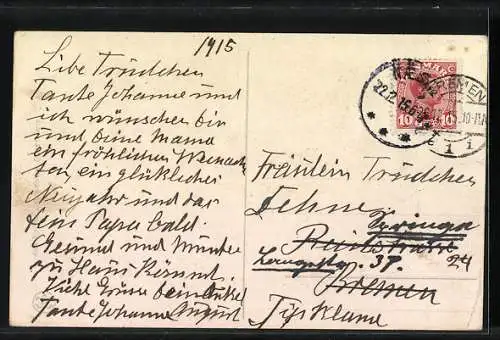 1915
Libe Trudchen
Tante Johanne und
ich wünschen dir
und deine Mama
ein fröhlichen Weinach
ten, ein glückliches
Neujahr und das
dein Papa bald
Gesund und Munter
zu Haus Kommt.
Viele Grüse dein Onkel
Tante Johanne August
22.12.15
BREMEN
1
10 10
Fräulein Trudchen
Dehne
Reitstrasse
37. 24
Bremen
Tyskland